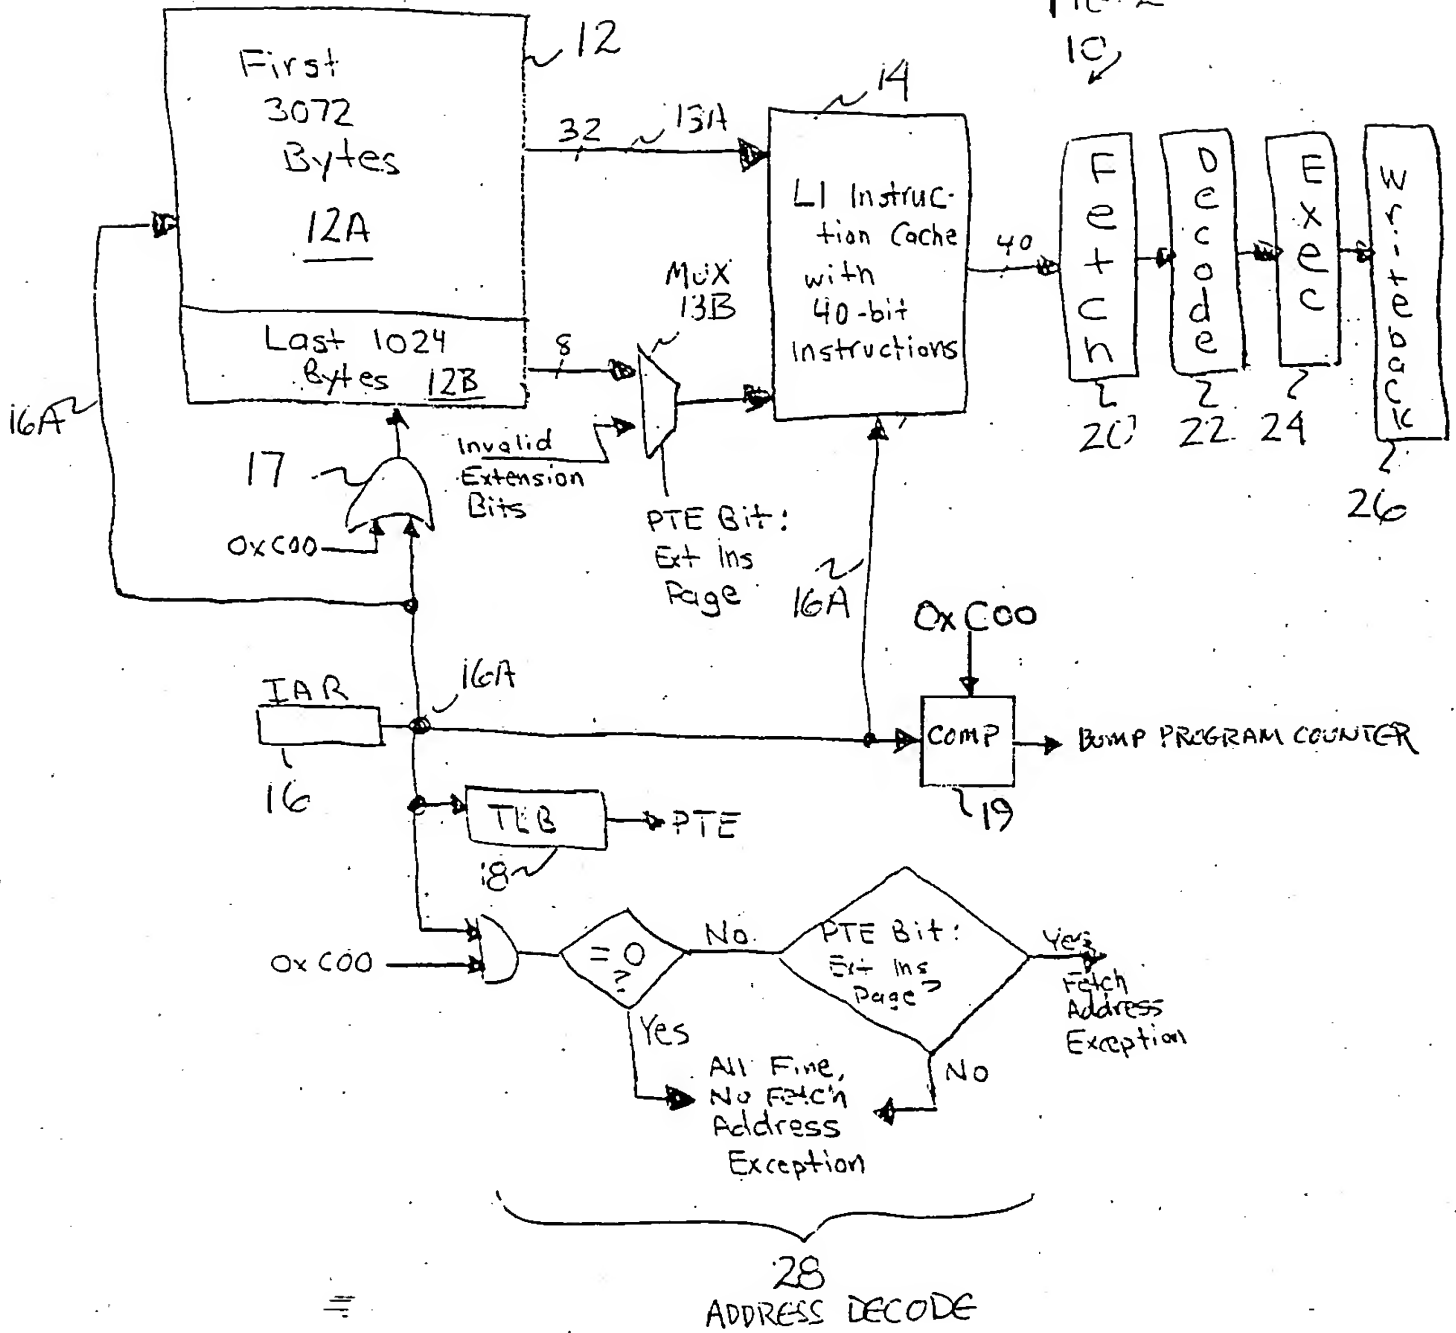 10
12
First
3072
Bytes
12A
32
13A
14
L1 Instruc-
tion Cache
with
40-bit
Instructions
40
Fetch
Decode
Exec
Writeback
20
22
24
26
Last 1024
Bytes 12B
8
MUX
13B
Invalid
Extension
Bits
PTE Bit:
Ext Ins
Page
16A
17
0xC00
16A
0xC00
IAR
16
16A
COMP
19
BUMP PROGRAM COUNTER
TLB
18
PTE
0xC00
= 0
?
No
Yes
PTE Bit:
Ext Ins
Page?
Yes
Fetch
Address
Exception
No
All Fine,
No Fetch
Address
Exception
28
ADDRESS DECODE